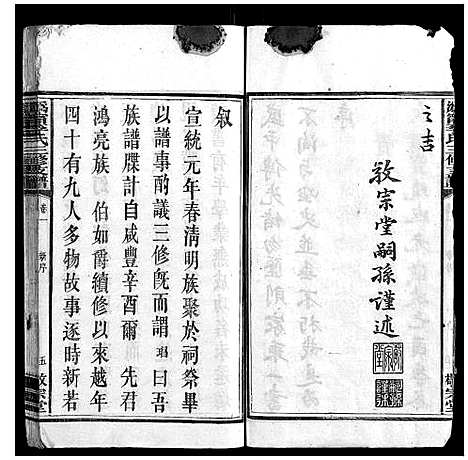 之吉
敦宗堂嗣孫謹述
敘
宣統元年春淸明族聚於祠祭畢
以譜事酌議三修旣而謂瑁曰吾
族譜牒計自咸豐辛酉爾 先君
鴻亮族 伯如爵續修以來越年
四十有九人多物故事逐時新若
氏三修支譜
卷一
敘序
五
敦宗堂